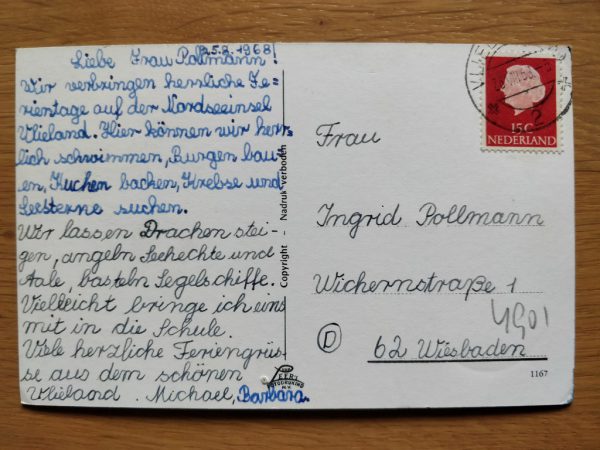 25.8.1968!
Liebe Frau Pollmann!
Wir verbringen herrliche Fe=
rientage auf der Nordseeinsel
Vlieland. Hier können wir herr-
lich schwimmen, Burgen bau-
en, Kuchen backen, Krebse und
Seesterne suchen.
Wir lassen Drachen stei-
gen, angeln Seehechte und
Aale, basteln Segelschiffe.
Vielleicht bringe ich eins
mit in die Schule.
Viele herzliche Feriengrüs-
se aus dem schönen
Vlieland. Michael, Barbara.
Copyright Nadruk verboden
15 C
NEDERLAND
Frau
Ingrid Pollmann
Wichernstraße 1
D
62 Wiesbaden
1167